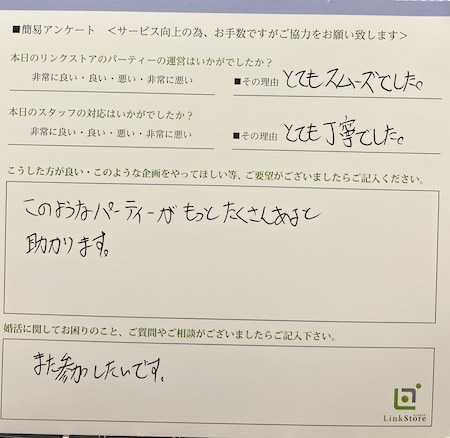 ■簡易アンケート　＜サービス向上の為、お手数ですがご協力をお願い致します＞
本日のリンクストアのパーティーの運営はいかがでしたか？
非常に良い・良い・悪い・非常に悪い　■その理由　とてもスムーズでした。
本日のスタッフの対応はいかがでしたか？
非常に良い・良い・悪い・非常に悪い　■その理由　とても丁寧でした。
こうした方が良い・このような企画をやってほしい等、ご要望がございましたらご記入ください。
このようなパーティーがもっとたくさんあると
助かります。
婚活に関してお困りのこと、ご質問やご相談がございましたらご記入下さい。
また参加したいです。
LinkStore